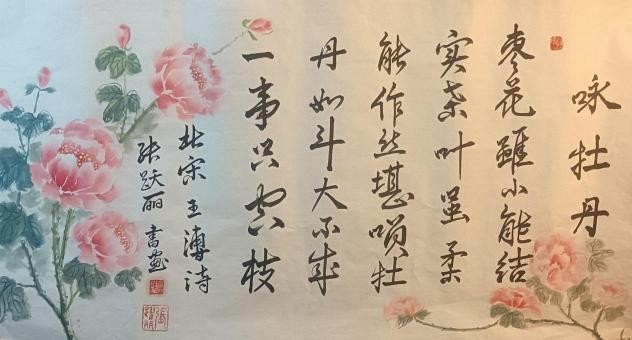 咏牡丹
枣花雖小能结
实桑叶虽柔
能作丝堪牡
丹如斗大不成
一事只空枝
北宋王溥诗
张跃丽书画